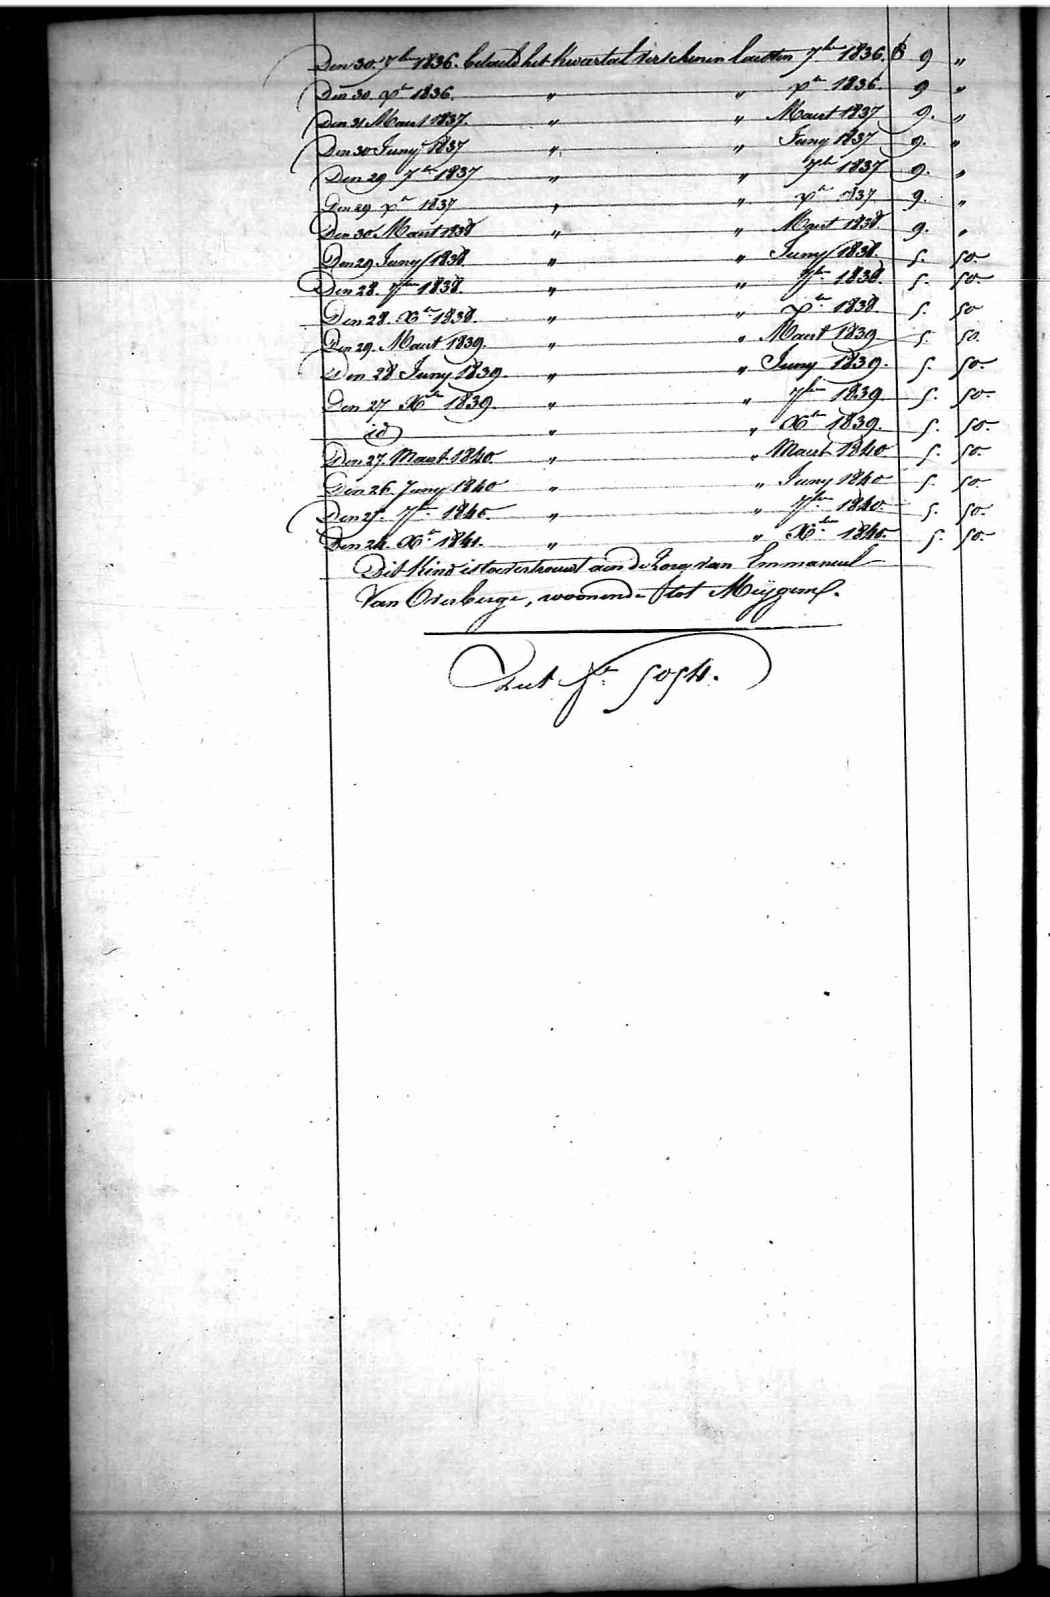 Den 30. 7ber 1836. betaeld het kwartael verschenen laetsten 7ber 1836. 9 „
Den 30 Xer 1836. „ „ Xer 1836. 9 „
Den 31 Maert 1837. „ „ Maert 1837 9. „
Den 30 Juny 1837 „ „ Juny 1837 9. „
Den 29 7ber 1837 „ „ 7ber 1837 9. „
Den 29 Xer 1837 „ „ Xer 1837 9. „
Den 30. Maert 1838 „ „ Maert 1838 9. „
Den 29 Juny 1838. „ „ Juny 1838. 5. 50.
Den 28. 7ber 1838. „ „ 7ber 1838. 5. 50.
Den 28. Xer 1838. „ „ Xer 1838. 5. 50
Den 29. Maert 1839. „ „ Maert 1839 5. 50.
Den 28 Juny 1839 „ „ Juny 1839. 5. 50.
Den 27 Xber 1839. „ „ 7ber 1839 5. 50.
id „ „ Xber 1839. 5. 50.
Den 27. Maert 1840. „ „ Maert 1840 5. 50.
Den 26. Juny 1840 „ „ Juny 1840 5. 50
Den 25. 7ber 1840. „ „ 7ber 1840. 5. 50
Den 24. Xer 1841. „ „ Xber 1840. 5. 50.
Dit Kind is toevertrouwt aen de Zorg van Emmanuel
Van Overberge, woonende tot Meygem.
5054.